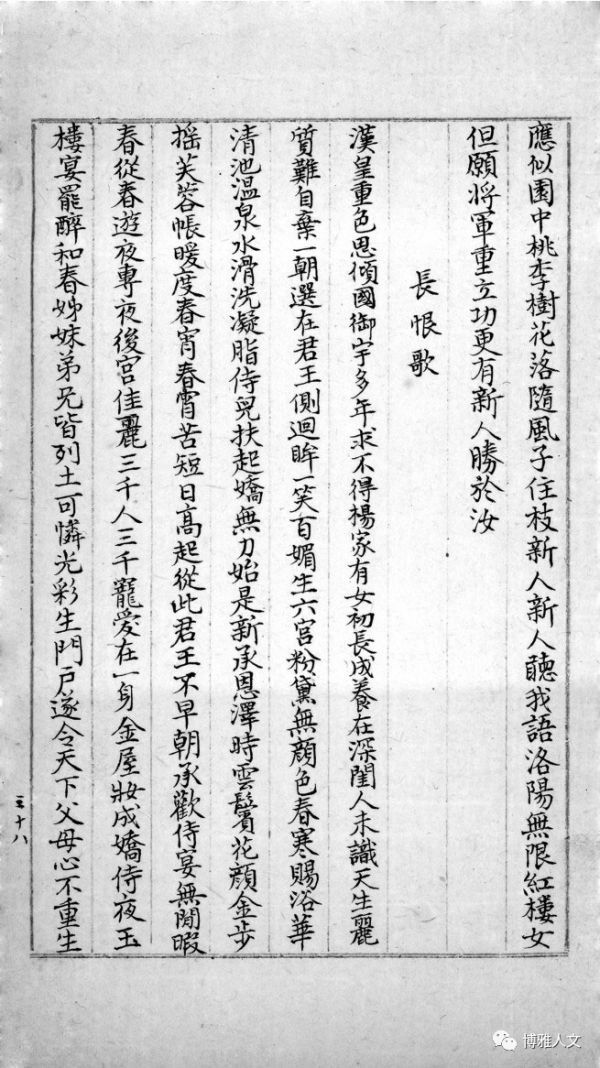 應似園中桃李樹花落隨風子住枝新人新人聽我語洛陽無限紅樓女
但願將軍重立功更有新人勝於汝
長恨歌
漢皇重色思傾國御宇多年求不得楊家有女初長成養在深閨人未識天生麗
質難自棄一朝選在君王側迴眸一笑百媚生六宮粉黛無顏色春寒賜浴華
清池溫泉水滑洗凝脂侍兒扶起嬌無力始是新承恩澤時雲鬢花顏金步
搖芙蓉帳暖度春宵春宵苦短日高起從此君王不早朝承歡侍宴無閒暇
春從春遊夜專夜後宮佳麗三千人三千寵愛在一身金屋妝成嬌侍夜玉
樓宴罷醉和春姊妹弟兄皆列土可憐光彩生門戶遂令天下父母心不重生
三十八
博雅人文